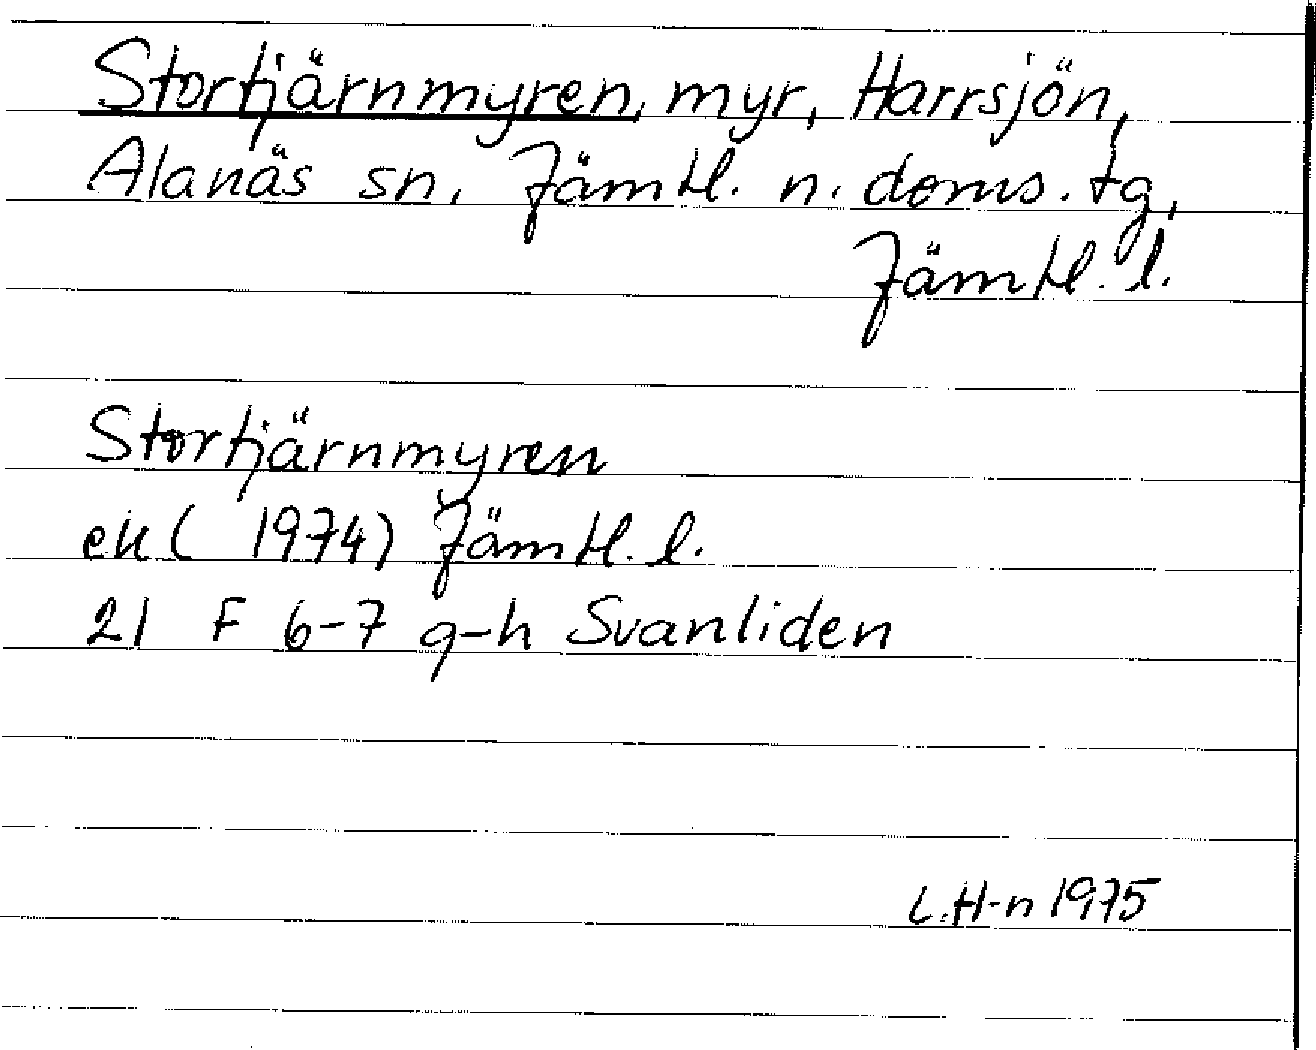 Stortjärnmyren, myr, Harrsjön,
Alanäs sn, Jämtl. n. doms. tg,
Jämtl. l.
Stortjärnmyren
ek ( 1974) Jämtl. l.
21 F 6-7 g-h Svanliden
L.H-n 1975